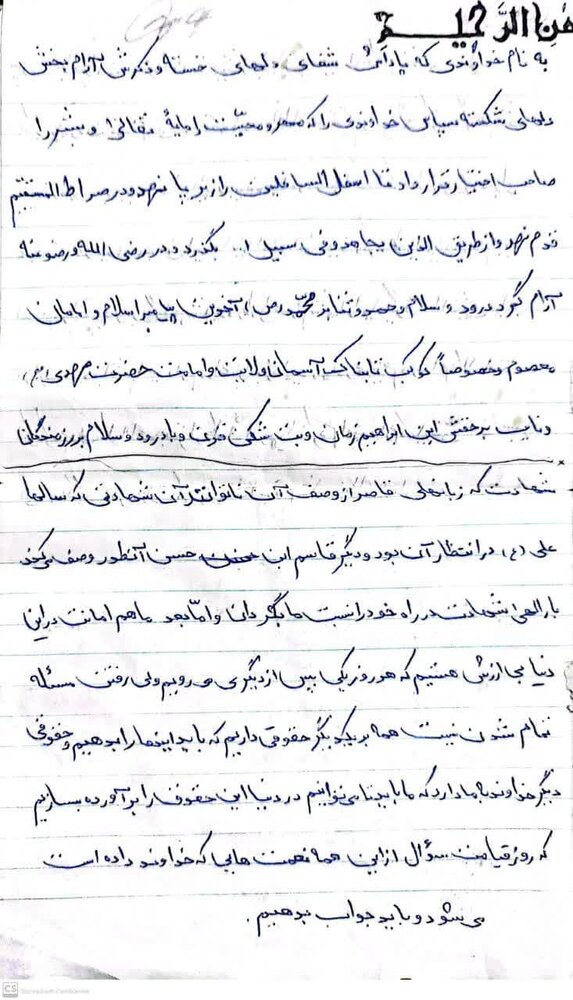 من الرَّحیـــم
به نام خداوندی که یادش شفای دلهای خسته و ذکرش آرام بخش
دلهای شکسته سپاس خداوندی را که مهر و محبّت را مایهٔ تعالی و بشر را
صاحب اختیار قرار داد تا اسفل السافلین را زیر پا نهد و در صراط المستقیم
قدم نهد و از طریق الذین یجاهدو فی سبیل ا... بگذرد و در رضی الله و رضوعنه
آرام گیرد درود و سلام و حمد و ثنا بر محمّد (ص) آخرین پیامبر اسلام و امامان
معصوم و خصوصاً کوکب تابناک آسمان ولایت و امامت حضرت مهدی (عج)
و نایب بر حقش این ابراهیم زمان و بت شکن قرن و با درود و سلام بر رزمندگان
شهادت که زبانهای قاصر از وصف آن ناتوانند آن شهادتی که سالها
علی (ع) در انتظار آن بود و دیگر قاسم ابن حسن آنطور وصف می‌کند
بارالهی شهادت در راه خود را نسیب ما بگردان و امّا بعد ما هم امانت در این
دنیا بی ارزش هستیم که هر روز یکی پس از دیگری می رویم ولی رفتن مسئله
تمام شدن نیست همه بر یکدیگر حقوقی داریم که باید اینها را بدهیم و حقوقی
دیگر خداوند به ما دارد که ما باید تا می‌توانیم در دنیا این حقوق را برآورده بسازیم
که روز قیامت سؤال از این همه نعمت هایی که خداوند داده است
می شود و باید جواب بدهیم.
CS